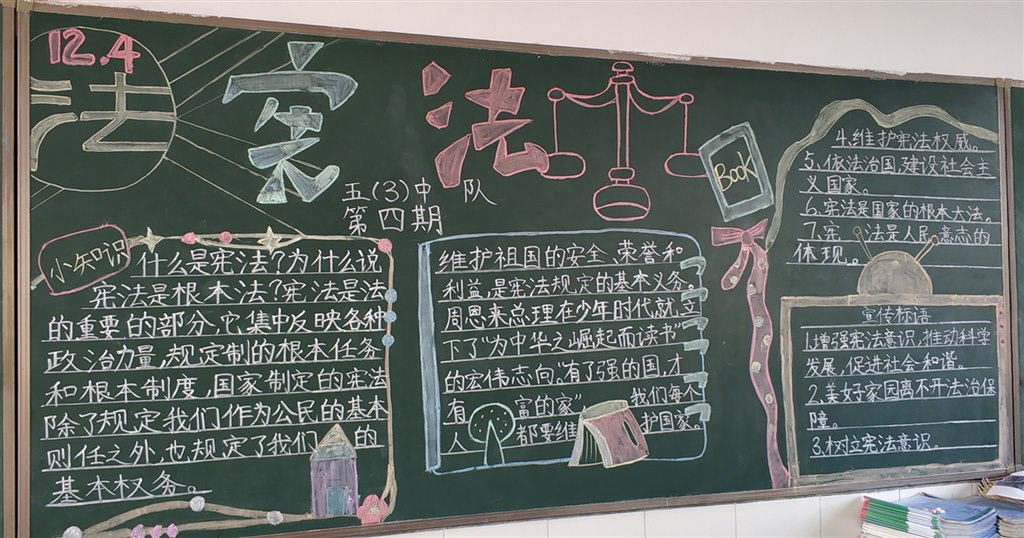 12.4
法
宪法
五(3)中队
第四期
Book
小知识
什么是宪法?为什么说
宪法是根本法?宪法是法
的重要的部分,它集中反映各种
政治力量,规定制的根本任务
和根本制度,国家制定的宪法
除了规定我们作为公民的基本
则任之外,也规定了我们的
基本权务。
维护祖国的安全、荣誉和
利益,是宪法规定的基本义务。
周恩来总理在少年时代就立
下了"为中华之崛起而读书"
的宏伟志向。"有了强的国,才
有富的家" 我们每个
人都要维护国家。
4.维护宪法权威。
5.依法治国,建设社会主
义国家。
6.宪法是国家的根本大法。
7.宪法是人民意志的
体现。
宣传标语
1.增强宪法意识,推动科学
发展,促进社会和谐。
2.美好家园离不开法治保
障。
3.树立宪法意识